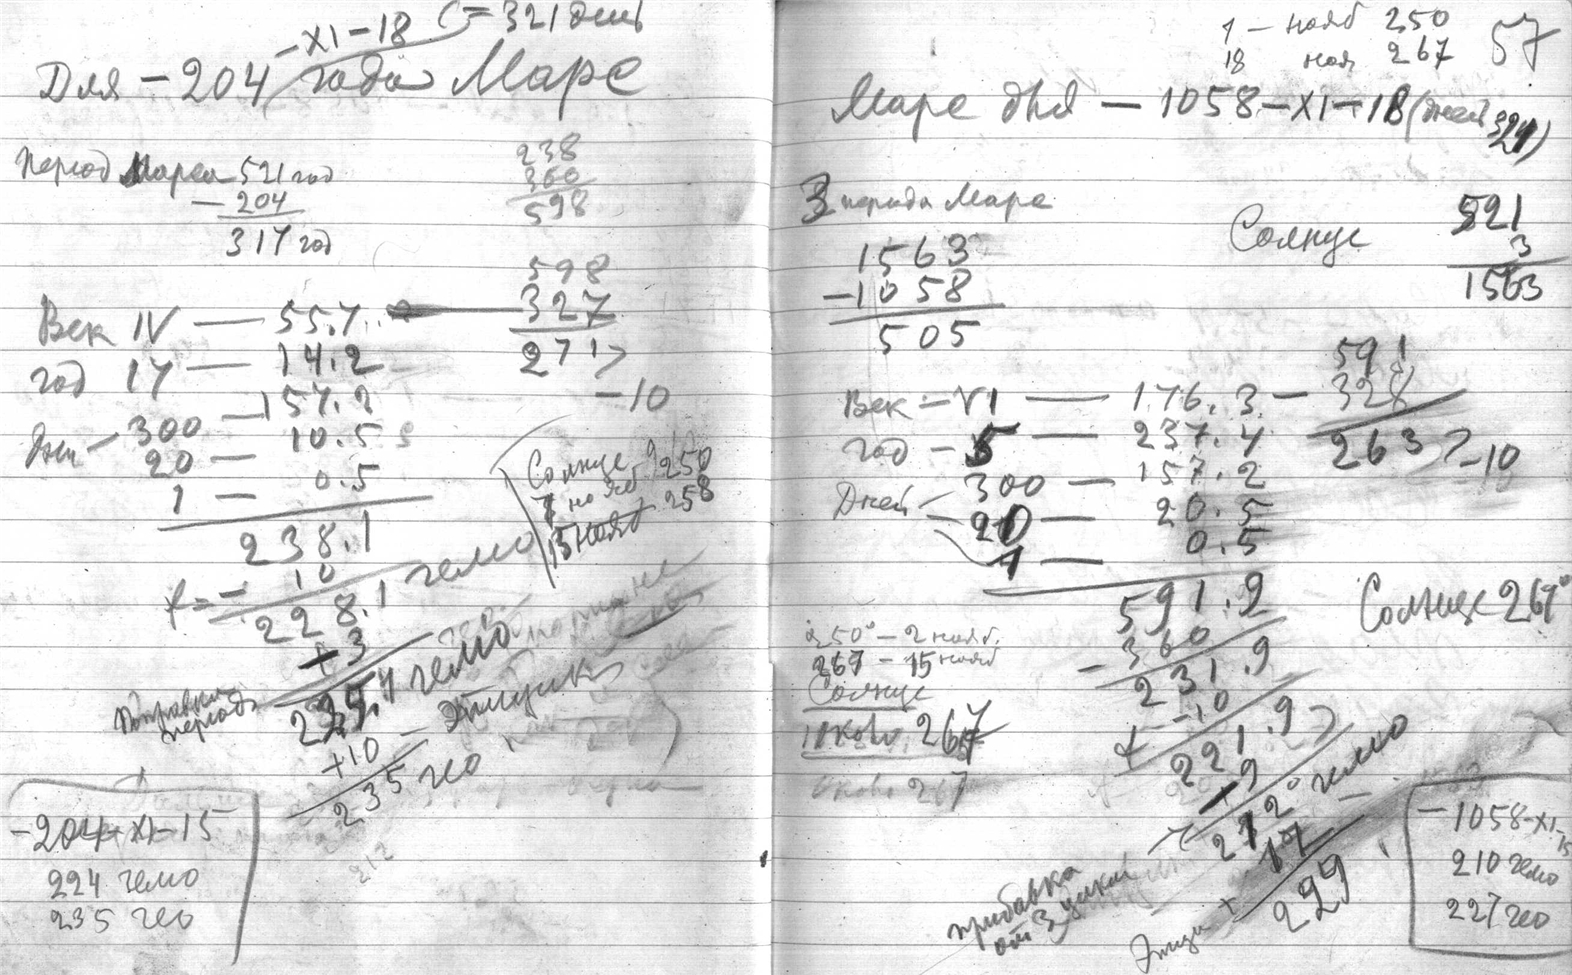 -XI-18 C=321 день
Для -204 года Марс
Период Марса 521 год
-204
317 год
238
360
598
598
327
271
-10
Век IV — 55.7
год 17 — 14.2
Дни — 300 — 157.2
20 — 10.5
1 — 0.5
238.1
10
228.1 гелио
+3
Поправка периода
гелио
+10 — Эпицикл
235 гео
Солнце
7 нояб. 250
15 нояб 258
-204-XI-15
224 гелио
235 гео
212
1 — нояб 250
18 ноя 267
57
Марс для — 1058-XI-18 (дней 321)
3 периода Марс
1563
-1058
505
Солнце
521
3
1563
591
328
263
-10
Век — VI — 176.3
год — 5 — 237.4
Дней
300 — 157.2
20 — 20.5
1 — 0.5
591.9
-360
231.9
-10
221.9
-9
212° гелио
17
229
Солнце 267°
250° — 2 нояб.
267 — 15 нояб
Солнце
около 267
около 267
прибавка
от 3 цикла
-1058-XI-15
210 гелио
227 гео